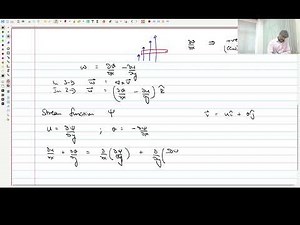 ∂v/∂x ⇒
ω = ∂v/∂x - ∂u/∂y
in 3-D
in 2-D ω⃗ = (∂v/∂x - ∂u/∂y) k̂
Stream function ψ v⃗ = uî + vĵ
u = ∂ψ/∂y ; v = -∂ψ/∂x
∂u/∂x + ∂v/∂y = ∂/∂x (∂ψ/∂y) + ∂/∂y (-∂ψ